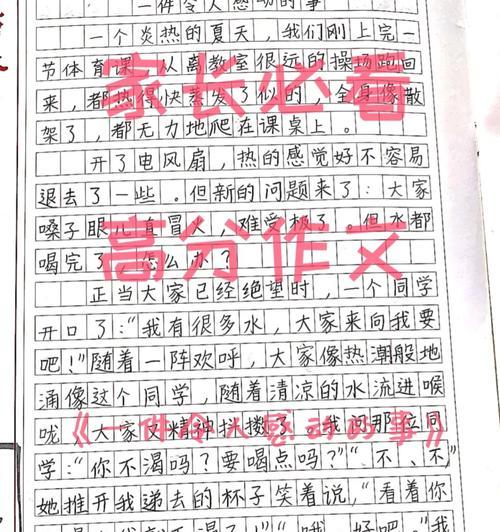 一件令人感动的事
一个炎热的夏天，我们刚上完一
节体育课，从离教室很远的操场跑回
来，都热得快蒸发了似的，全身像散
架了，都无力地爬在课桌上。
开了电风扇，热的感觉好不容易
退去了一些。但新的问题来了：大家
嗓子眼儿直冒火，难受极了。但水都
喝完了，怎么办？
正当大家已经绝望时，一个同学
开口了：“我有很多水，大家来向我要
吧！”随着一阵欢呼，大家像热潮般地
涌像这个同学，随着清凉的水流进喉
咙，大家又精神抖擞了。我问那位同
学：“你不渴吗？要喝点吗？”“不、不，”
她推开我递去的杯子笑着说，“看着你
家长必看
高分作文
《一件令人感动的事》